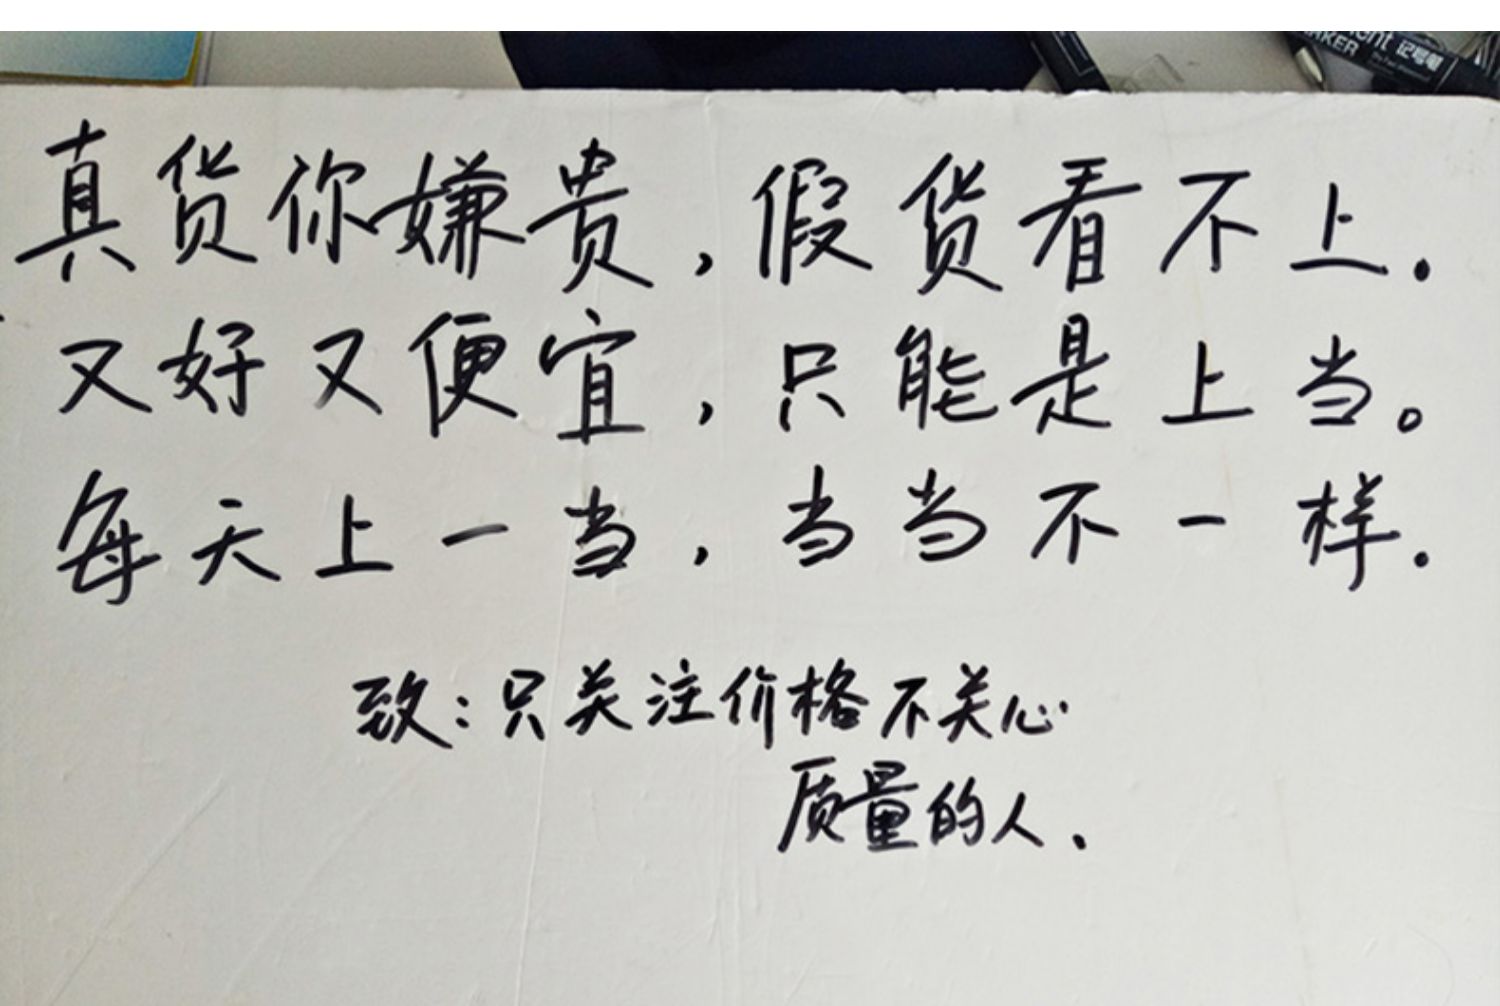 ment 记号笔
MARKER
真货你嫌贵,假货看不上.
又好又便宜,只能是上当。
每天上一当,当当不一样.
致:只关注价格不关心
质量的人.